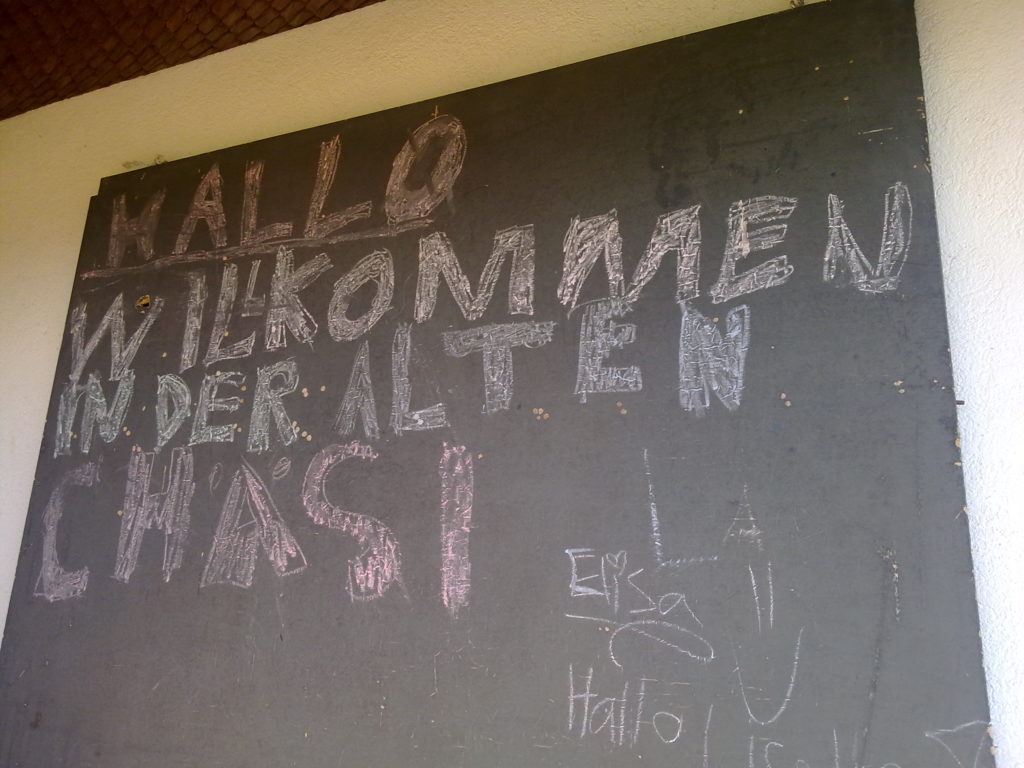 HALLO
WILLKOMMEN
IN DER ALTEN
CHÄSI
Elisa
Hallo